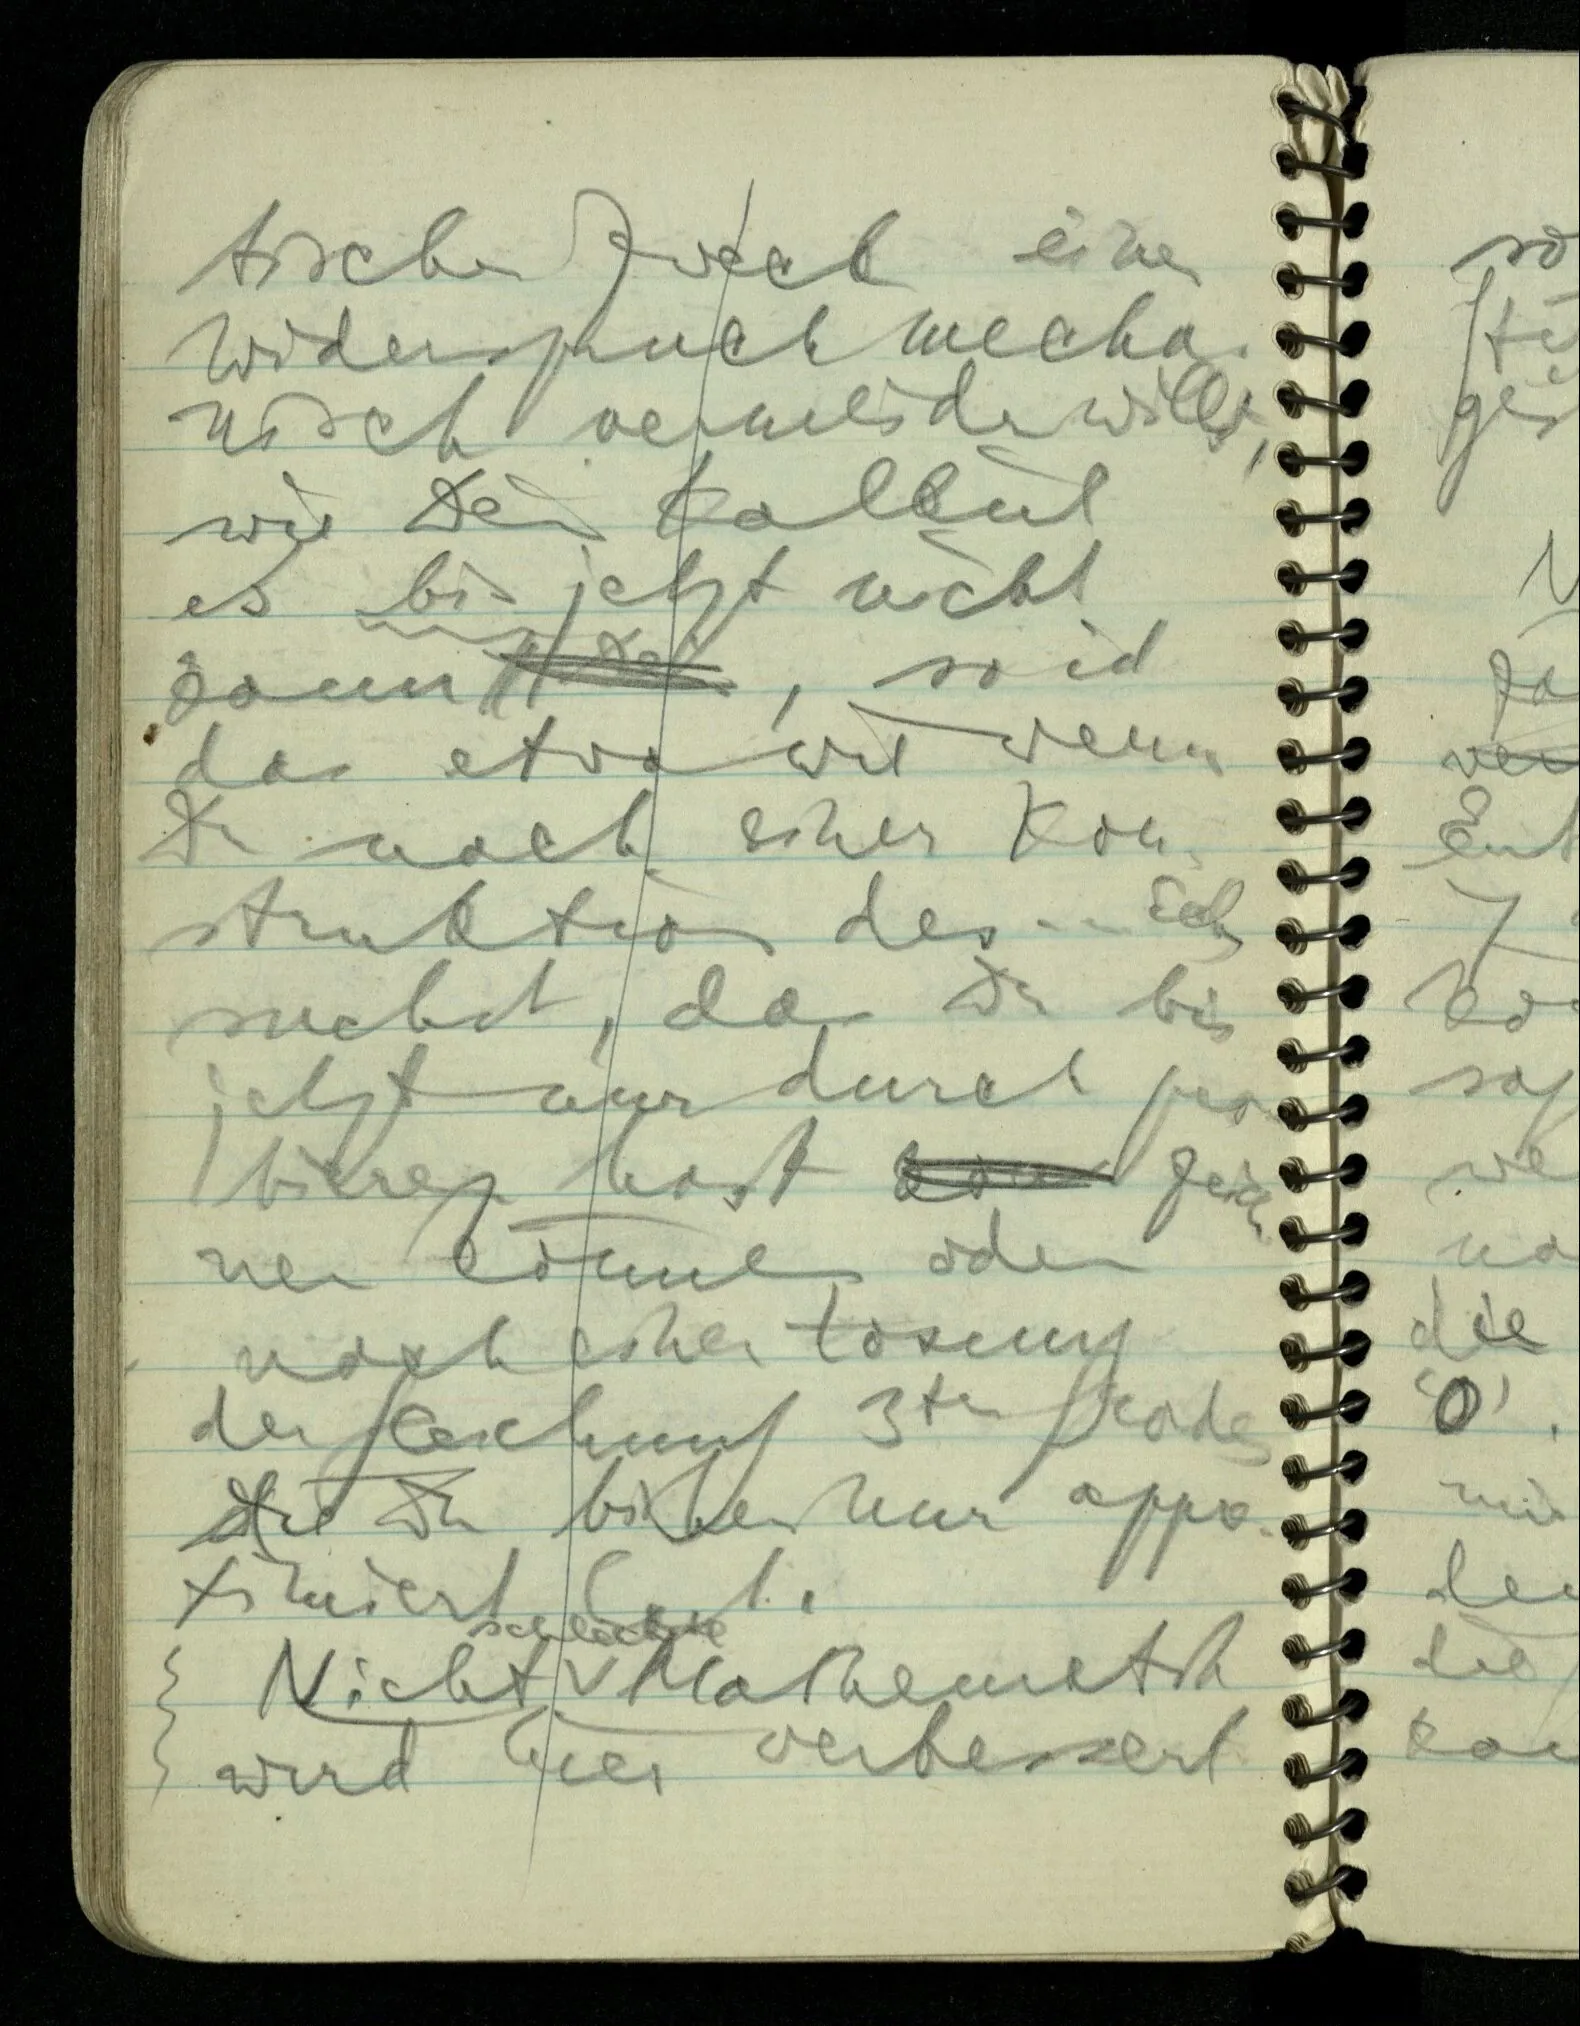 tischen Zweck einen
Widerspruch mecha-
nisch vermeiden willst,
wie Dein Kalkül
es bis jetzt nicht
kann, so ist
das etwa wie wenn
Du nach einer Kon-
struktion des ... Ecks
suchst, das Du bis
jetzt nur durch pro-
bieren hast zeich-
nen können oder
nach einer Lösung
der Gleichung 3ten Grades
die Du bisher nur appro-
ximiert hast.
schlechte
Nicht Mathematik
wird hier verbessert
so
ges
die
'0'.